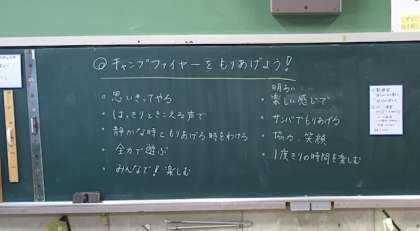 ◎キャンプファイヤーをもりあげよう!
・思いきってやる
・はっきりときこえる声で
・静かな時ともりあげる時をわける
・全力で遊ぶ
・みんなで!楽しむ
明るい
・楽しい感じで
・サンバでもりあげる
・協力、笑顔
・1度きりの時間を楽しむ